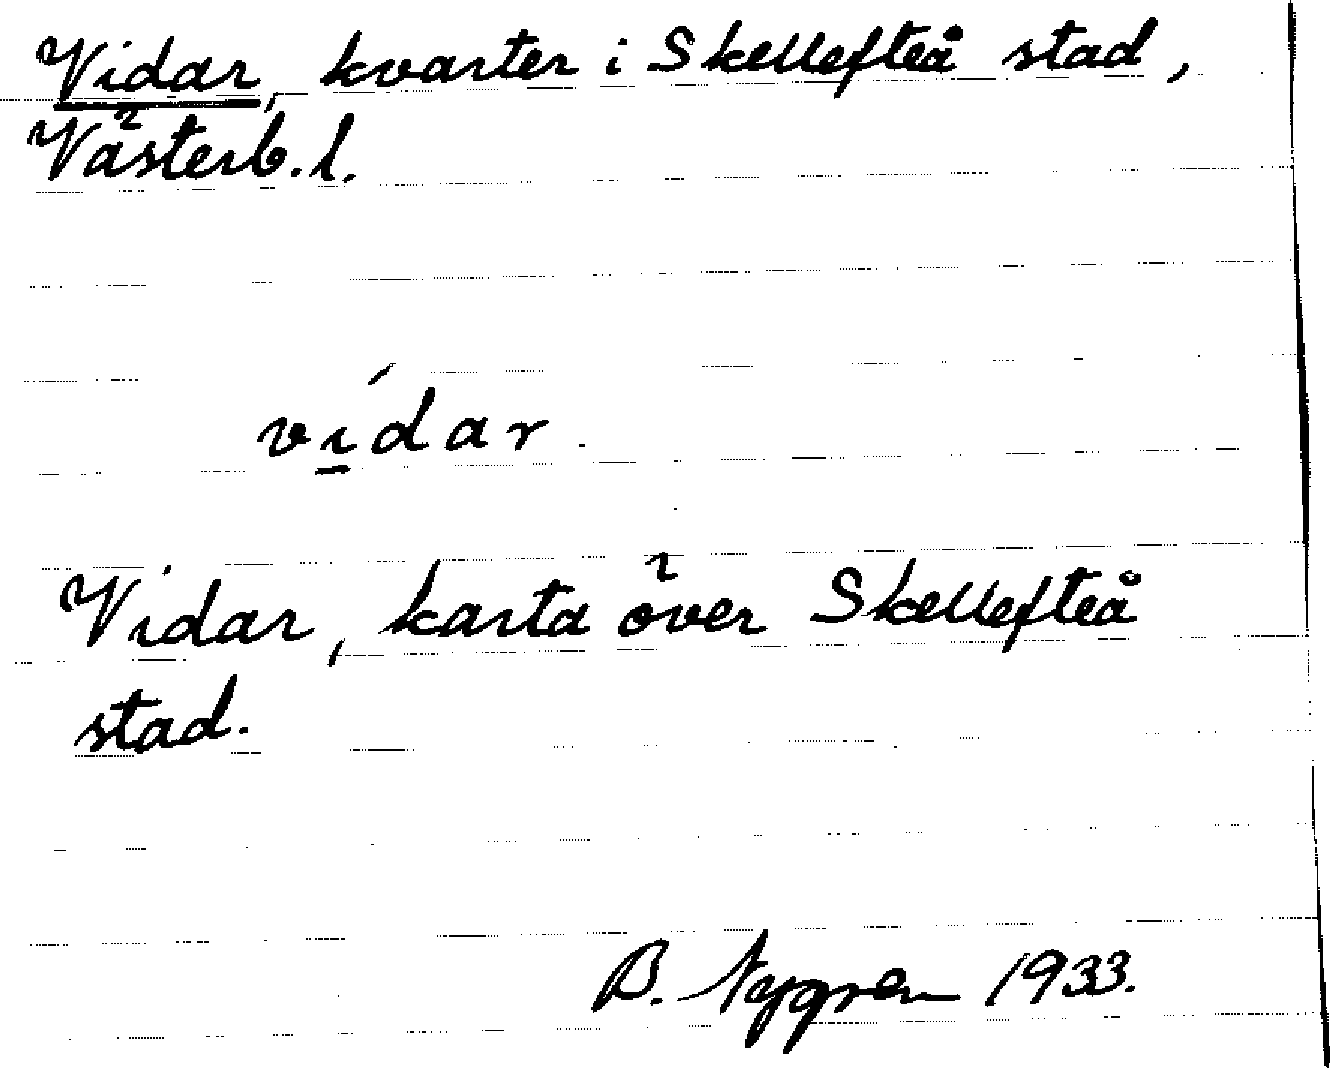 Vidar, kvarter i Skellefteå stad,
Västerb. l.
v́i̲dar.
Vidar, karta över Skellefteå
stad.
B. Nygren 1933.